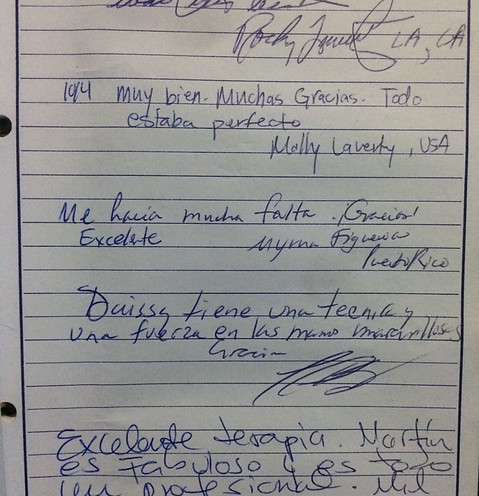 Rocky LA, CA
10/4 Muy bien. Muchas Gracias. Todo
estaba perfecto
Molly Laverty, USA
Me hacia mucha falta. ¡Gracias!
Excelente Myrna Figueroa
Puerto Rico
Daissy tiene una tecnica y
una fuerza en las manos maravillosas
Gracias
Excelente terapia. Martín
es fabuloso y es todo
un profesional. Mil